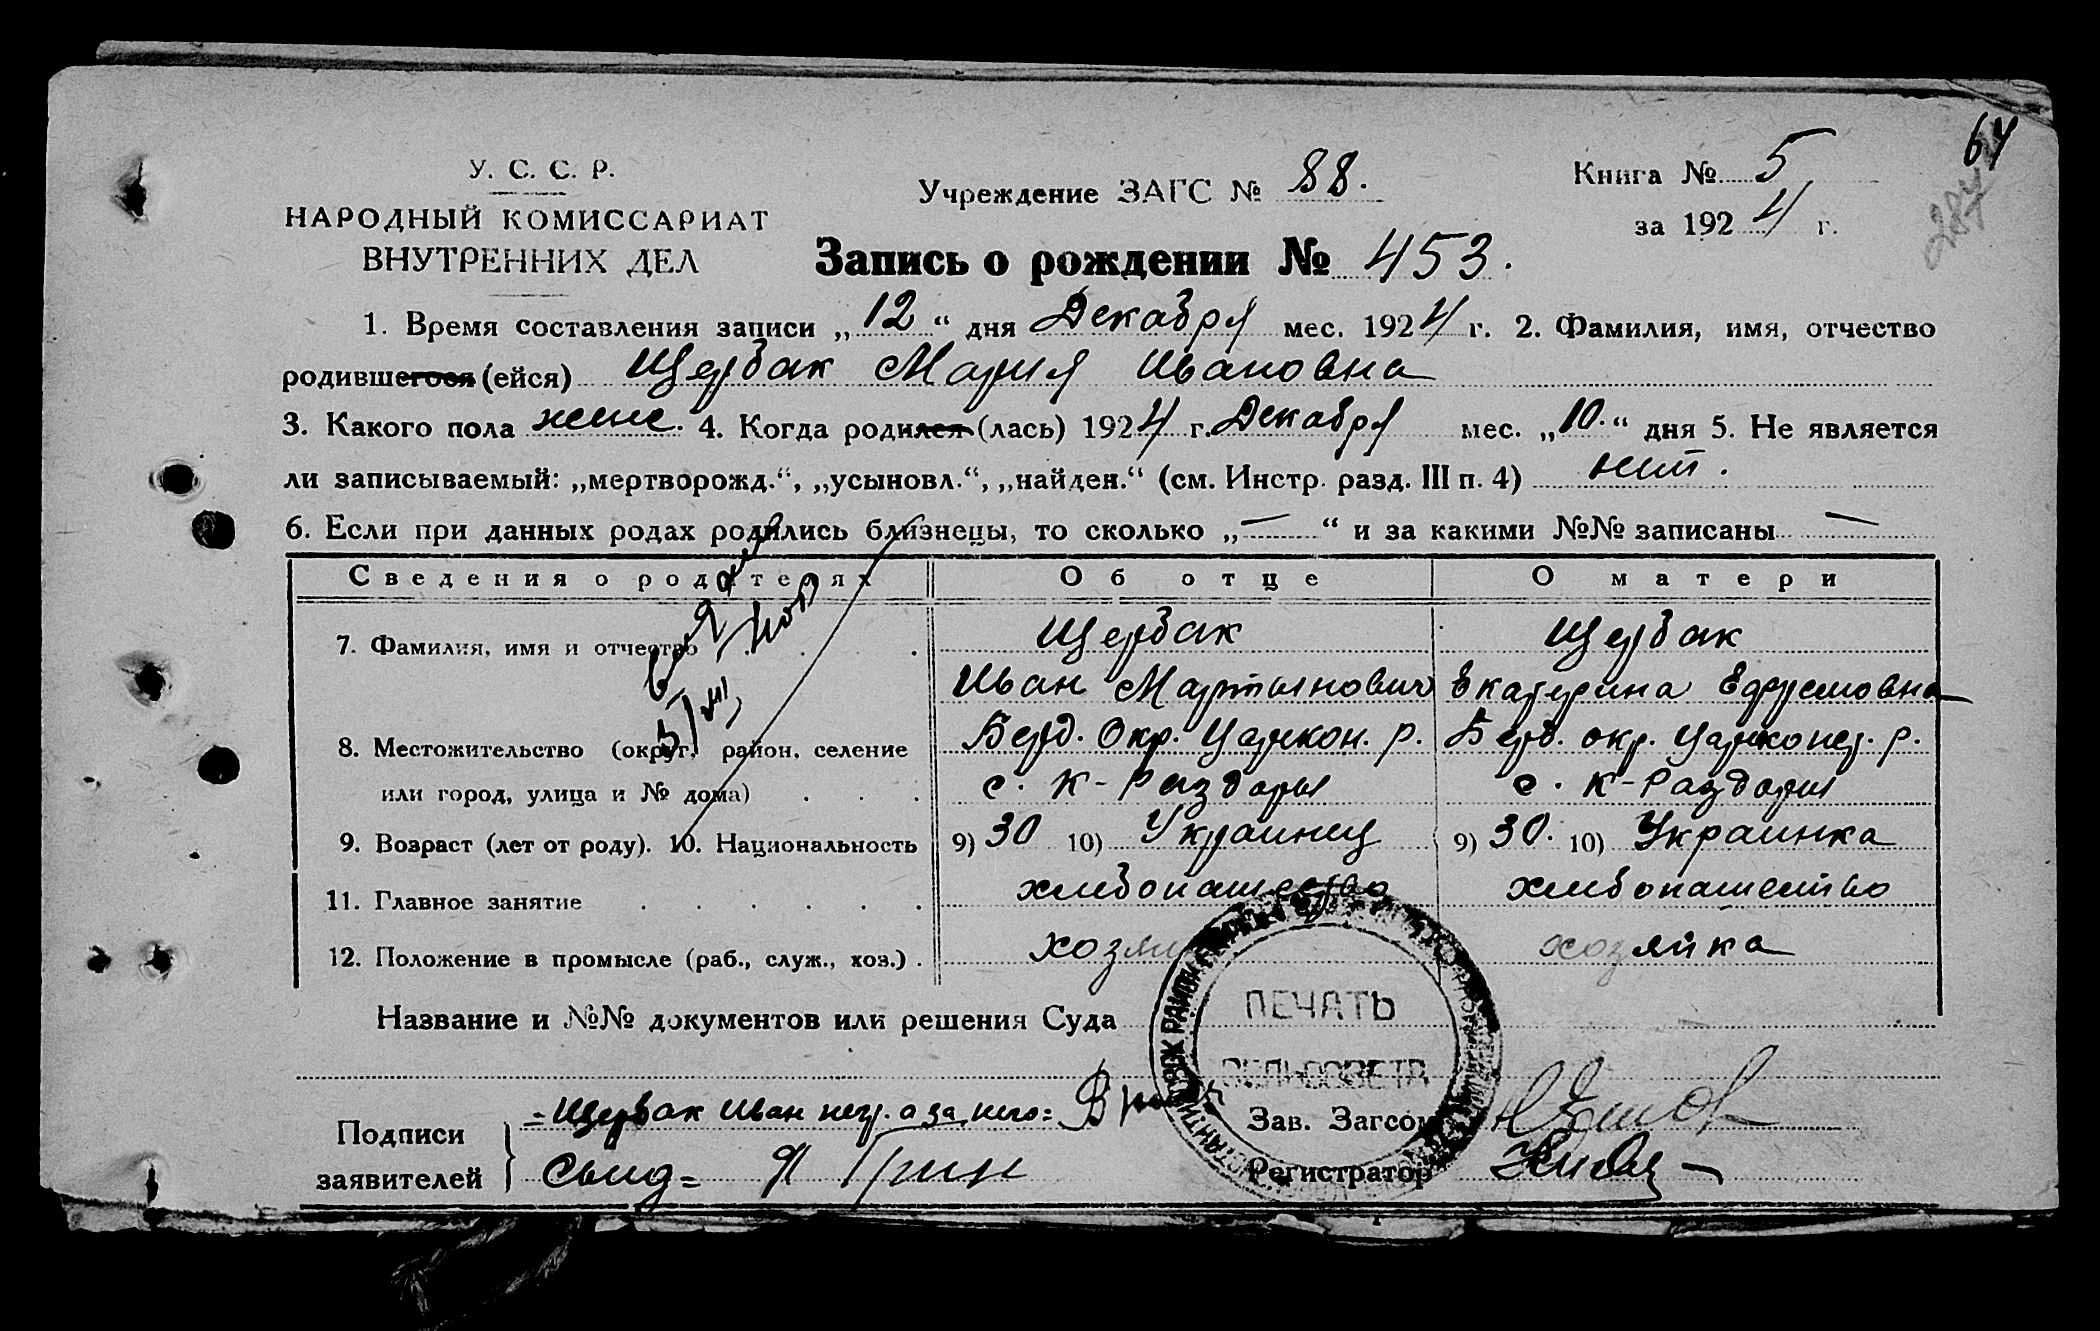 64
287
У. С. С. Р.
НАРОДНЫЙ КОМИССАРИАТ
ВНУТРЕННИХ ДЕЛ
Учреждение ЗАГС № 88.
Книга № 5
за 1924 г.
Запись о рождении № 453.
1. Время составления записи „12“ дня Декабря мес. 1924 г. 2. Фамилия, имя, отчество
родившегося (ейся) Щербак Мария Ивановна
3. Какого пола женс. 4. Когда родился (лась) 1924 г. Декабря мес. „10.“ дня 5. Не является
ли записываемый: „мертворожд.“, „усыновл.“, „найден.“ (см. Инстр. разд. III п. 4) нет.
6. Если при данных родах родились близнецы, то сколько „—“ и за какими №№ записаны —
Сведения о родителях Об отце О матери
7. Фамилия, имя и отчество Щербак Щербак
Иван Мартынович Екатерина Ефремовна
8. Местожительство (округ, район, селение Берд. Окр. Царекон. р. Берд. окр. Царекон. р.
или город, улица и № дома) с. К-Раздоры с. К-Раздоры
9. Возраст (лет от роду). 10. Национальность 9) 30 10) Украинец 9) 30. 10) Украинка
11. Главное занятие хлебопашество хлебопашество
12. Положение в промысле (раб., служ., хоз.) хозяин хозяйка
Название и №№ документов или решения Суда
ПЕЧАТЬ
СЕЛЬСОВЕТА
Подписи
заявителей
Щербак Иван негр. а за него:
Свид= Я Грин
Зав. Загсом
Регистратор